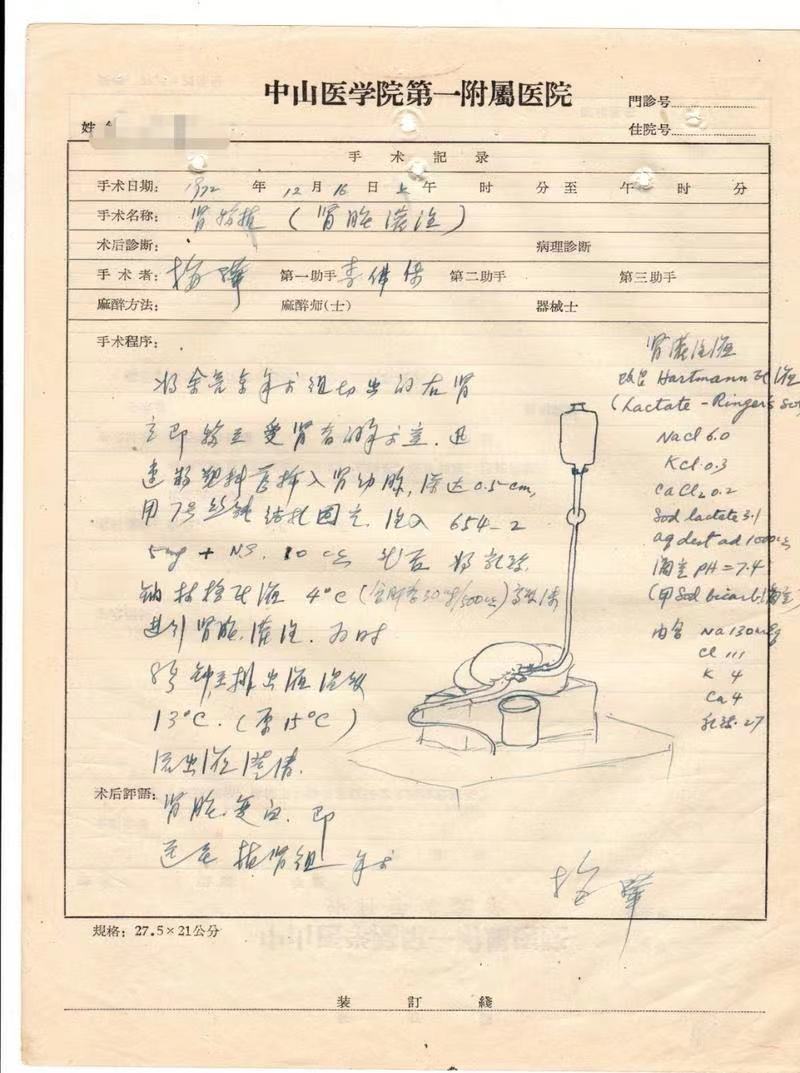 中山医学院第一附屬医院
門診号
姓名
住院号
手术記录
手术日期: 1972 年 12 月 16 日 上午 时 分至 午 时 分
手术名称: 肾移植 (肾脏灌注)
术后診断: 病理診断
手术者: 梅骅 第一助手 李佛保 第二助手 第三助手
麻醉方法: 麻醉师(士) 器械士
手术程序:
将 手术组切出的右肾
立即移至受肾者的手术室. 迅
速将塑料管插入肾动脉, 深达0.5cm,
用7号丝线结扎固定. 注入 654-2
5mg + N.S. 10 cc 然后将乳酸
钠 液 4°C (含肝素50mg/500cc)
进行肾脏灌注. 为时
8分钟至排出液温度
13°C. (原15°C)
流出液澄清.
肾灌注液
Hartmann 氏液
(Lactate-Ringer's Sol
NaCl 6.0
KCl 0.3
CaCl₂ 0.2
Sod lactate 3.1
aq dest ad 1000cc
滴定 PH = 7.4
(用 Sod bicarb 滴定)
内含 Na 130 mEq
Cl 111
K 4
Ca 4
乳酸 27
术后評語:
肾脏变白. 即
送至植肾组手术
梅骅
规格: 27.5×21公分
装訂綫